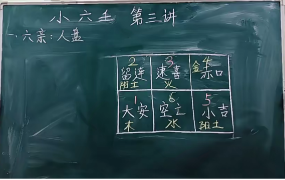 小六壬 第三讲
一、六亲：人盘
2 3 金4
留连 速喜 赤口
阳土 火
1 6 5
大安 空亡 小吉
木 水 阳土